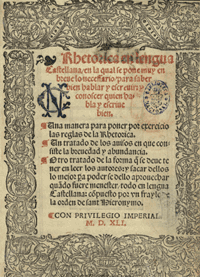 Rhetorica en lengua
Castellana/ en la qual se pone muy en
breue lo necessario/ para saber
bien hablar y escreuir: y
conoscer quien ha-
bla y escriue
bien.
Una manera para poner por exercicio
las reglas de la Rhetorica.
Un tratado de los auisos en que con-
siste la breuedad y abundancia.
Otro tratado de la forma q̃ se deue te-
ner en leer los autores: y sacar dellos
lo mejor pa poder se dello aprouechar
quãdo fuere menester. todo en lengua
Castellana: cõpuesto por vn frayle de
la orden de sant Hieronymo.
CON PRIVILEGIO IMPERIAL.
M. D. XLI.